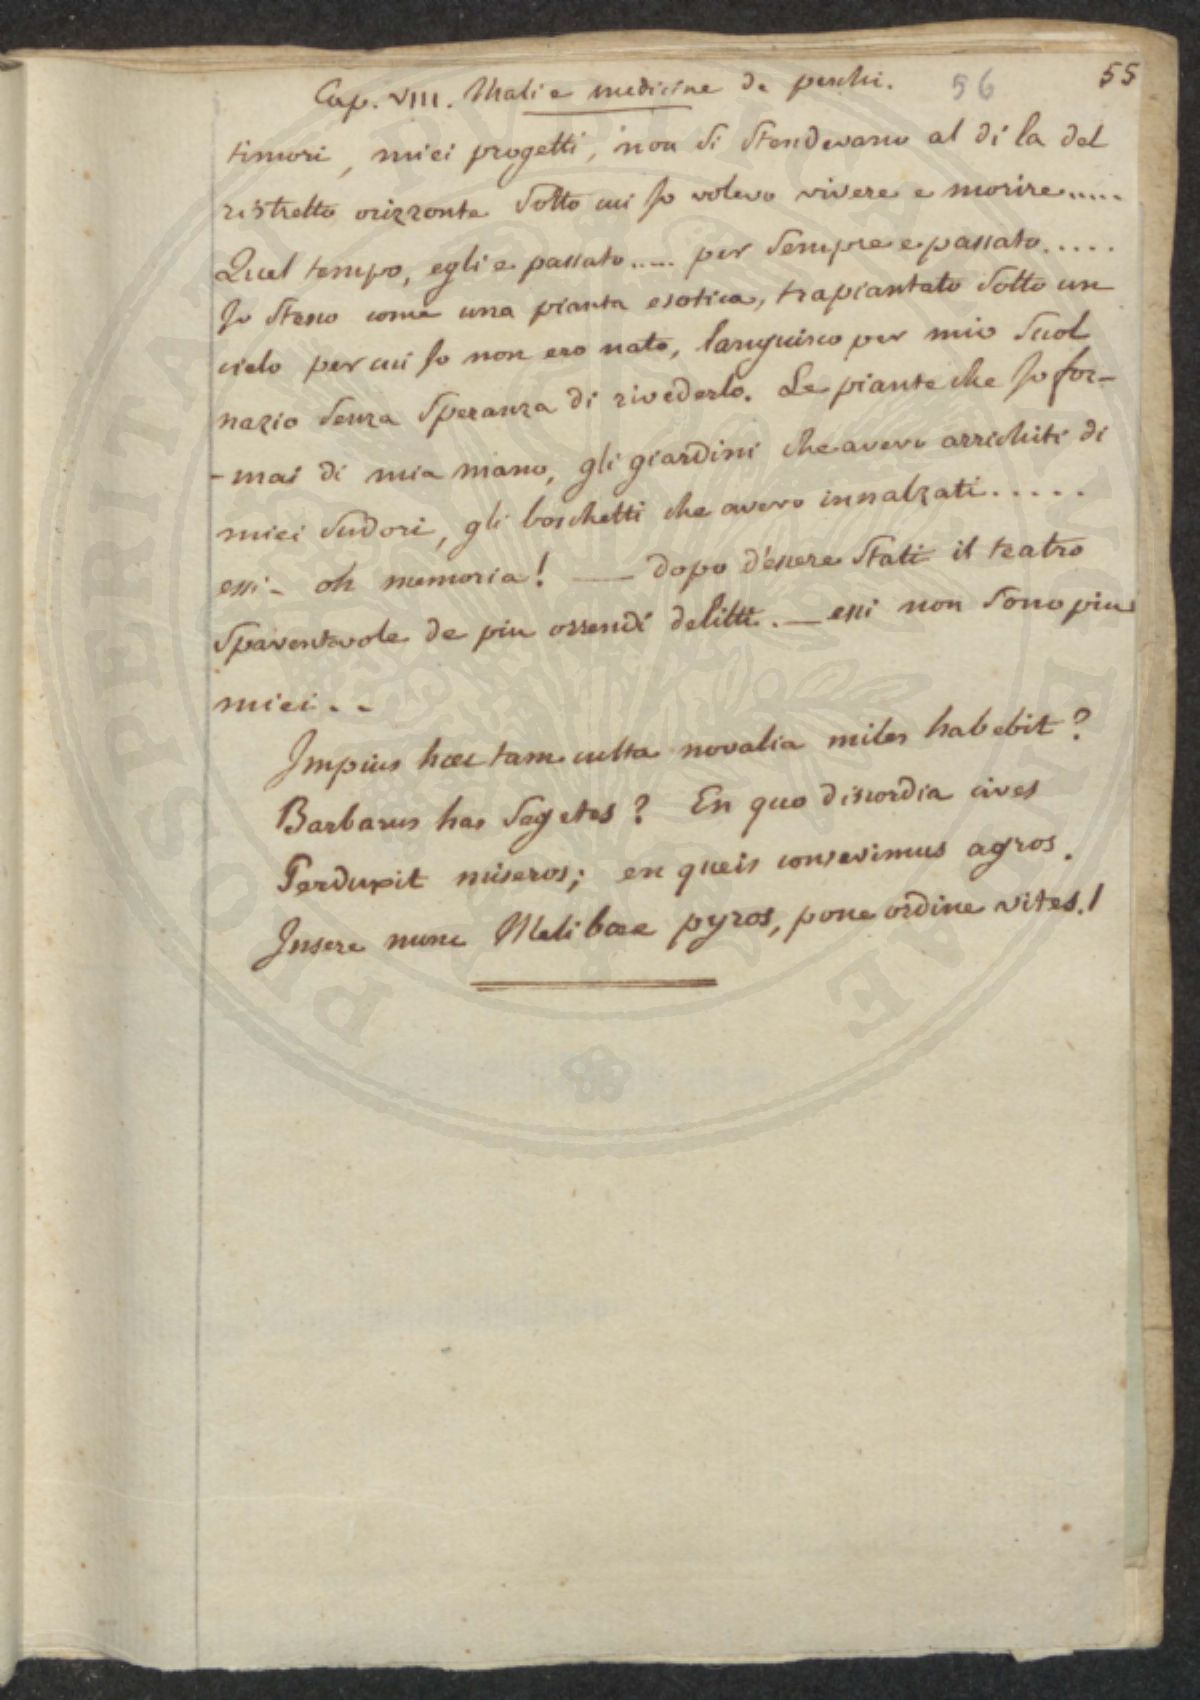 Cap. VIII. Mali e medicine de peschi. 56 55
timori, miei progetti, non si stendevano al di la del
ristretto orizzonte sotto cui Jo volevo vivere e morire.....
Quel tempo, egli e passato..... per sempre e passato.....
Jo stesso come una pianta esotica, trapiantato sotto un
cielo per cui Jo non ero nato, languisco per mio suol
nazio senza speranza di rivederlo. Le piante che Jo for-
-mai di mia mano, gli giardini che avevo arrichiti di
miei sudori, gli boschetti che avevo innalzati.....
essi - oh memoria! — dopo d'essere stati il teatro
spaventevole de piu orrendi delitti. — essi non sono piu
miei - -
Jmpius haec tam culta novalia miles habebit?
Barbarus has segetes? En quo discordia cives
Perduxit miseros; en queis consevimus agros.
Jnsere nunc Meliboee pyros, pone ordine vites.!
PROSPERITATI PUBLICAE AUGENDAE